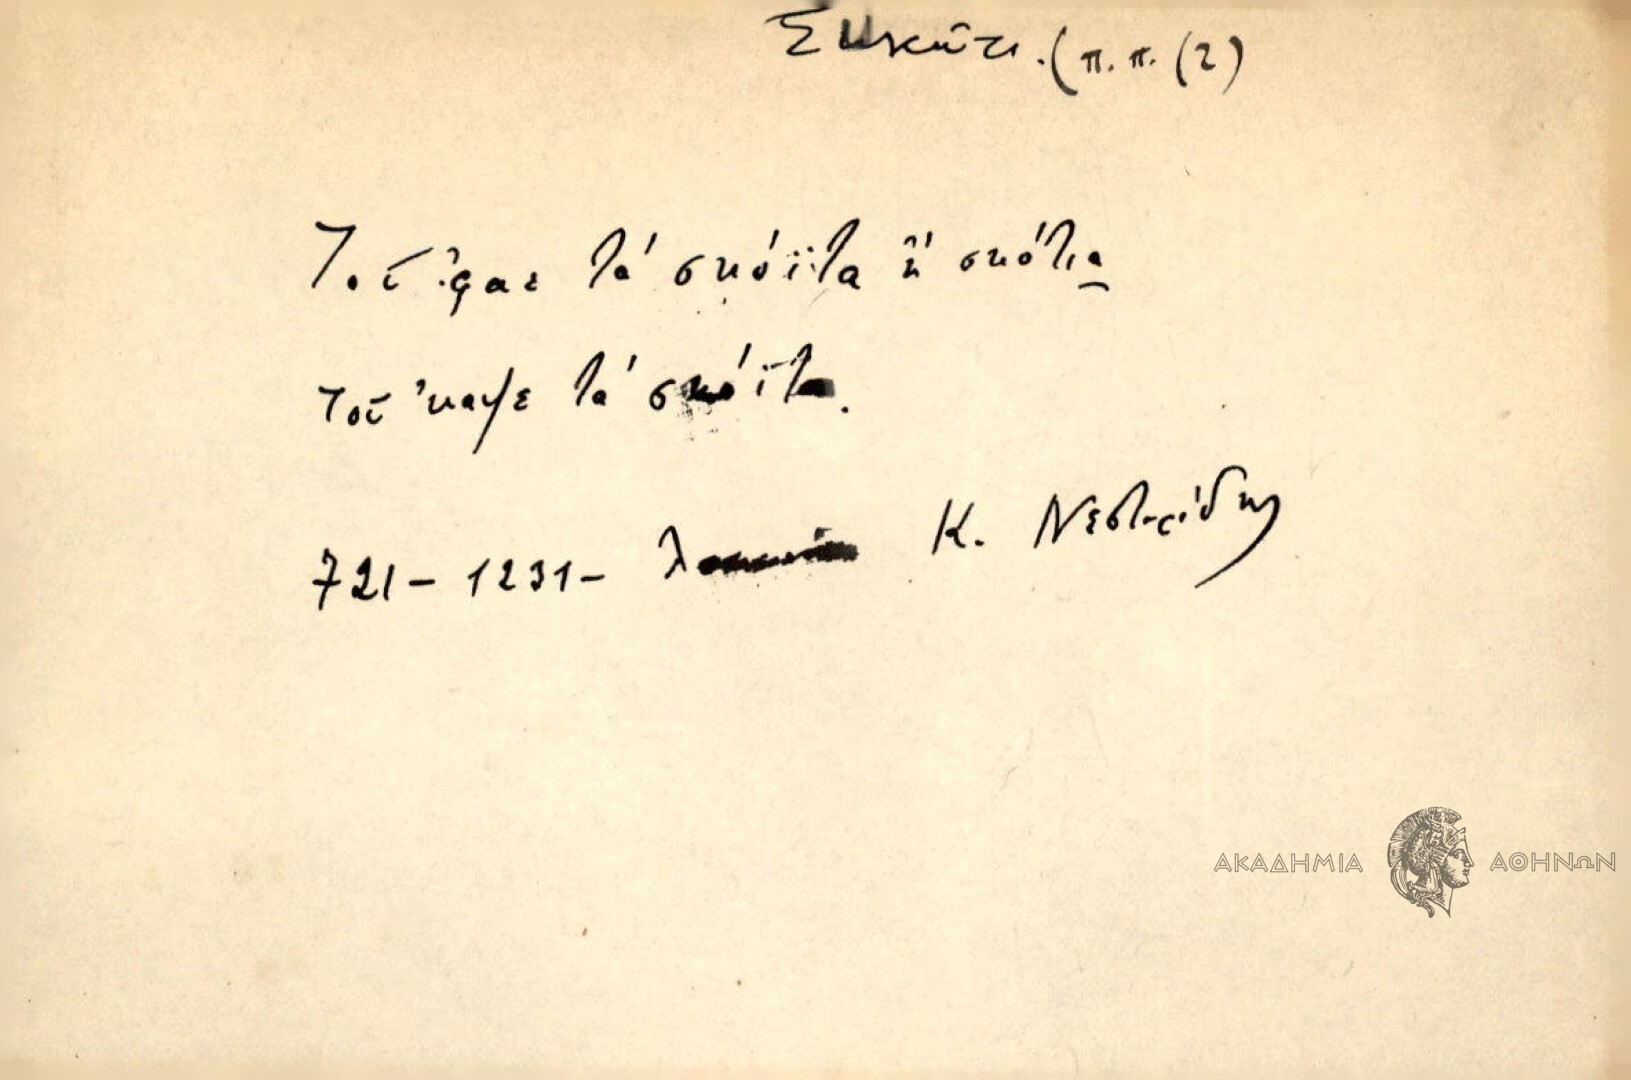 Συκῶτι. (π.π. (2)
Τοῦ 'φαε τά σκόϊτα ἤ σκότια
τοῦ 'καψε τά σκόϊτα.
721 - 1231 - Κ. Νεστορίδης
ΑΚΑΔΗΜΙΑ ΑΘΗΝΩΝ